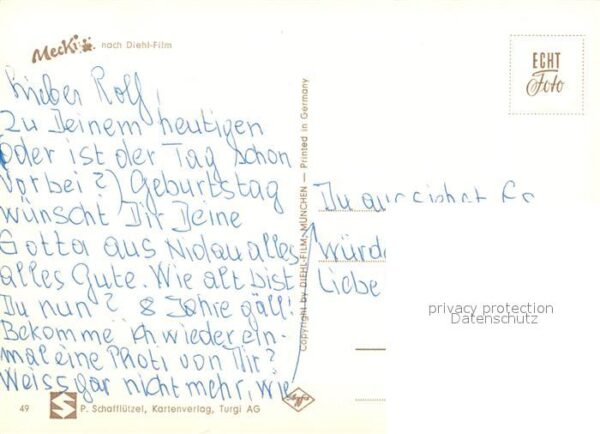 Mecki nach Diehl-Film
ECHT
Foto
Lieber Rolf,
Zu Deinem heutigen
(oder ist der Tag schon
vorbei?) Geburtstag
wünscht Dir Deine
Gotta aus Nidau alles
alles Gute. Wie alt bist
Du nun? 8 Jahre gäll!
Bekomme ich wieder ein-
mal eine Photi von Dir?
Weiss gar nicht mehr, wie
Du
würde
Liebe
Copyright by DIEHL-FILM, MÜNCHEN — Printed in Germany
privacy protection
Datenschutz
49
S
P. Schafflützel, Kartenverlag, Turgi AG
Agfa